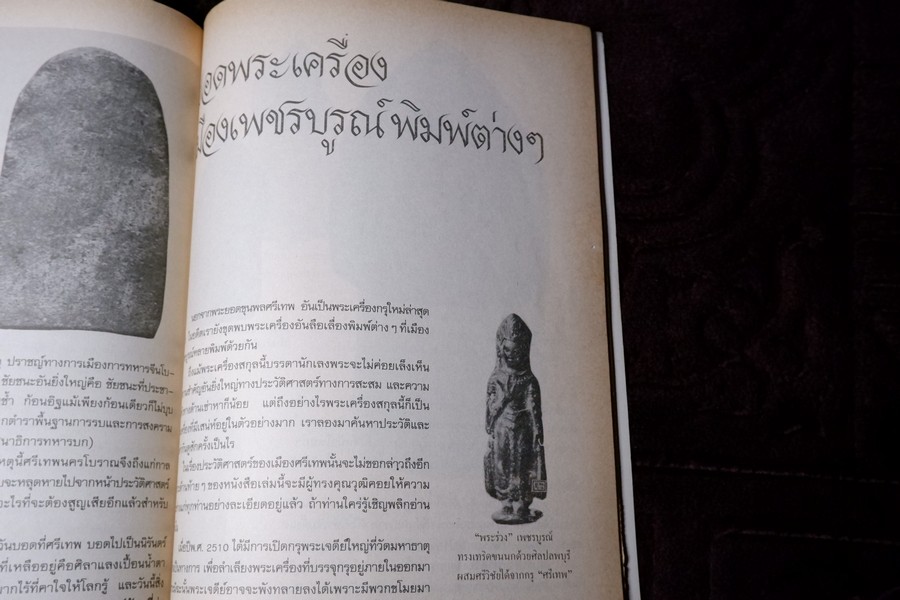 ปราชญ์ทางการเมืองการทหารจีนโบ-
ชัยชนะอันยิ่งใหญ่คือ ชัยชนะที่ประชา-
ซ้ำ ก้อนอิฐแม้เพียงก้อนเดียวก็ไม่บุบ
กตำราพื้นฐานการรบและการสงคราม
นาธิการทหารบก)
เหตุนี้ศรีเทพนครโบราณจึงถึงแก่กาล
บจะหลุดหายไปจากหน้าประวัติศาสตร์
อะไรที่จะต้องสูญเสียอีกแล้วสำหรับ
วันบอดที่ศรีเทพ บอดไปเป็นนิรันดร์
ที่เหลืออยู่คือศิลาแลงเปื้อนน้ำตา
ยากไร้ที่คาใจให้โลกรู้ และวันนี้สิ่ง
อดพระเครื่อง
มืองเพชรบูรณ์ พิมพ์ต่างๆ
นอกจากพระยอดขุนพลศรีเทพ อันเป็นพระเครื่องกรุใหม่ล่าสุด
ในอดีตเรายังขุดพบพระเครื่องอันลือเลื่องพิมพ์ต่าง ๆ ที่เมือง
บูรณ์หลายพิมพ์ด้วยกัน
ถึงแม้พระเครื่องสกุลนี้บรรดานักเลงพระจะไม่ค่อยเล็งเห็น
ามสำคัญอันยิ่งใหญ่ทางประวัติศาสตร์ทางการสะสม และความ
ทางด้านเช่าหาก็น้อย แต่ถึงอย่างไรพระเครื่องสกุลนี้ก็เป็น
ครื่องที่มีเสน่ห์อยู่ในตัวอย่างมาก เราลองมาค้นหาประวัติและ
กันดูสักครั้งเป็นไร
ในเรื่องประวัติศาสตร์ของเมืองศรีเทพนั้นจะไม่ขอกล่าวถึงอีก
ด้านท้าย ๆ ของหนังสือเล่มนี้จะมีผู้ทรงคุณวุฒิคอยให้ความ
แก่ทุกท่านอย่างละเอียดอยู่แล้ว ถ้าท่านใคร่รู้เชิญพลิกอ่าน
เมื่อปีพ.ศ. 2510 ได้มีการเปิดกรุพระเจดีย์ใหญ่ที่วัดมหาธาตุ
เป็นทางการ เพื่อลำเลียงพระเครื่องที่บรรจุกรุอยู่ภายในออกมา
ะนั้นพระเจดีย์อาจจะพังทลายลงได้เพราะมีพวกขโมยมา
"พระร่วง" เพชรบูรณ์
ทรงเทริดขนนกด้วยศิลปลพบุรี
ผสมศรีวิชัยได้จากกรุ "ศรีเทพ"